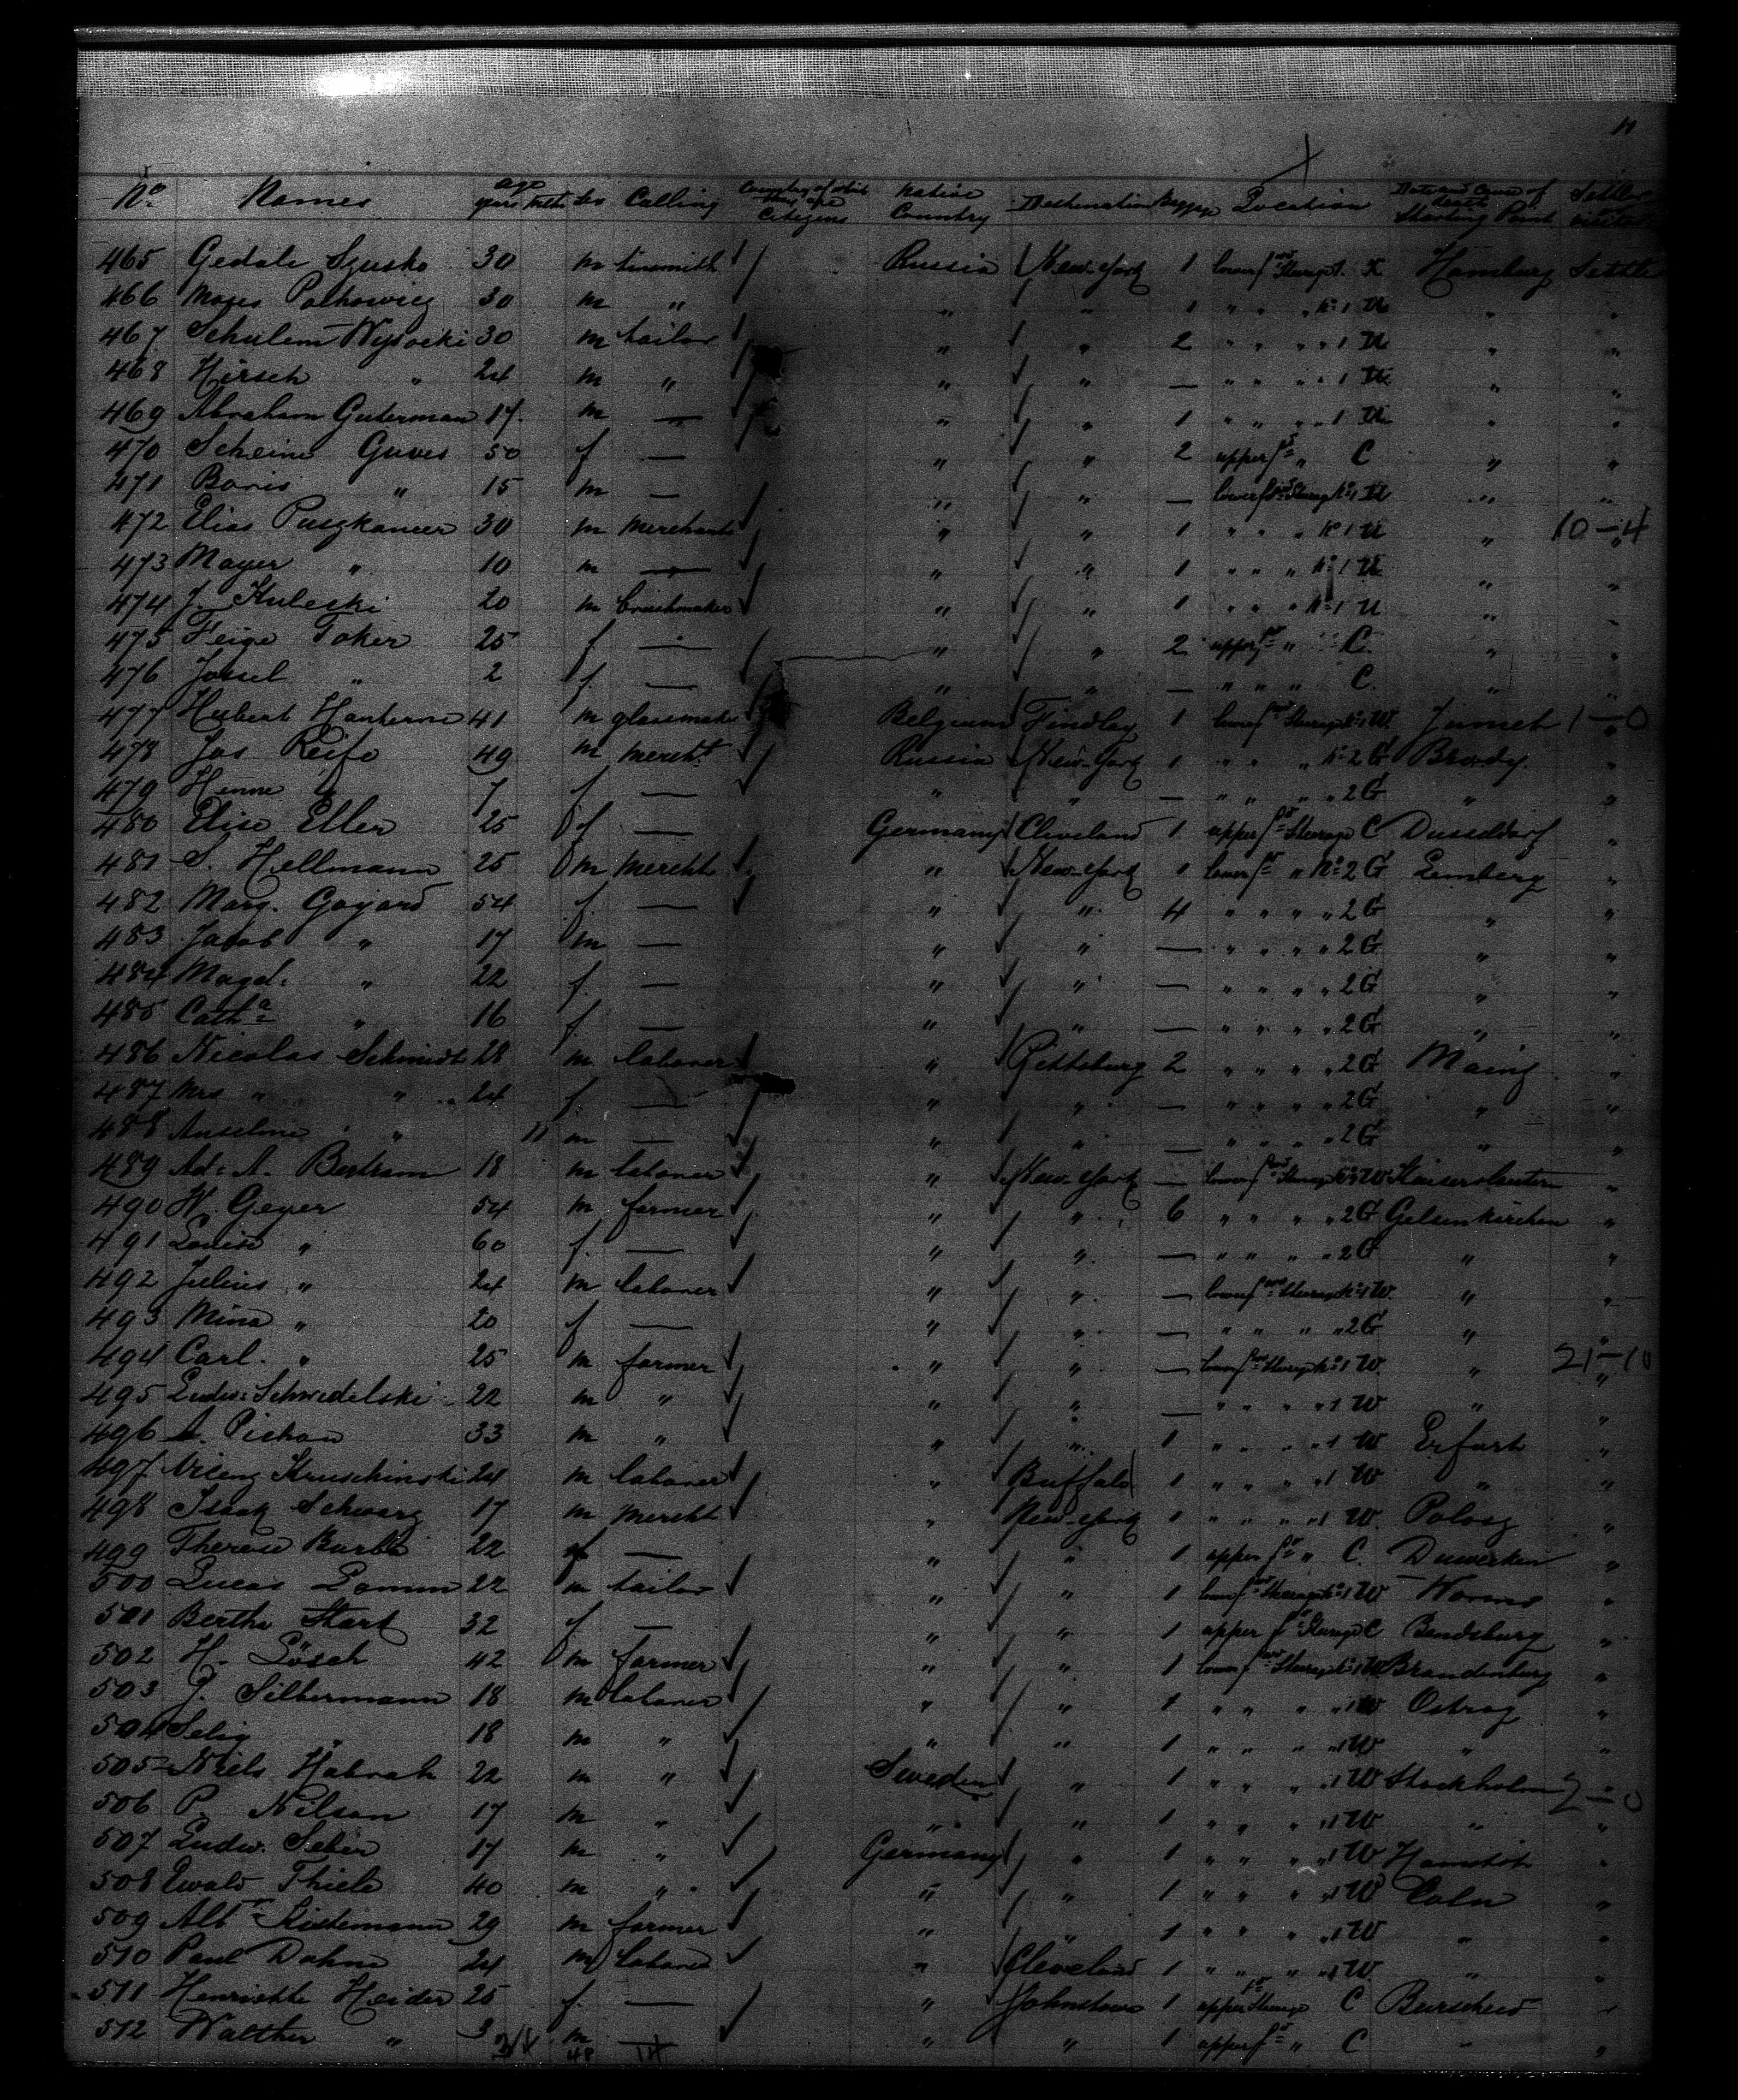 11
No. Names age years mths Sex Calling Country of which they are Citizens Native Country Destination Baggage Location Date and Cause of death Starting Point Settler or visitor
465 Gedale Szusko 30 m tinsmith Russia New-York 1 lower Steerage Hamburg Settler
466 Moses 30 m " " " 1 " " " No 1 U " "
467 Schulem Wysocki 30 m tailor " " 2 " " " " 1 U " "
468 Hirsch " 24 m " " " — " " " " 1 U " "
469 Abraham Guterman 17 m — " " 1 " " " " 1 U " "
470 Scheine Guves 50 f — " " 2 upper " C " "
471 Boris " 15 m — " " — lower Steerage No 1 U " "
472 Elias Puszkancer 30 m Merchant " " 1 " " " No 1 U " " 10-4
473 Mayer " 10 m — " " 1 " " " No 1 U " "
474 J. Kuleski 20 m brushmaker " " 1 " " " No 1 U " "
475 Feige Toker 25 f — " " 2 upper " C " "
476 Jossel " 2 f — " " — " " " C " "
477 Hubert 41 m glassmaker Belgium Findlay 1 lower Steerage No 1 W Jumet " 1-0
478 Jos Reife 49 m mercht Russia New-York 1 " " " No 2 G Brody "
479 Henne " 7 f — " " — " " " " 2 G " "
480 Elise Eller 25 f — Germany Cleveland 1 upper Steerage C Dusseldorf "
481 S. Hellmann 25 m Mercht " New-York 1 lower " No 2 G Lemberg "
482 Marg. Gayard 54 f — " " 4 " " " " 2 G " "
483 Jacob " 17 m — " " — " " " " 2 G " "
484 Magd. " 22 f — " " — " " " " 2 G " "
485 Catha " 16 f — " " — " " " " 2 G " "
486 Nicolas Schmidt 28 m laborer " Pittsburg 2 " " " " 2 G Mainz "
487 Mrs " " 24 f — " " — " " " " 2 G " "
488 Anselme " 11 m — " " — " " " " 2 G " "
489 Ad. A. Bertram 18 m laborer " New-York — lower Steerage No 1 W Kaiserslautern "
490 W. Geyer 54 m farmer " " 6 " " " " 2 G Gelsenkirchen "
491 Louise " 60 f — " " — " " " " 2 G " "
492 Julius " 24 m laborer " " — lower Steerage No 1 W " "
493 Mina " 20 f — " " — " " " " 2 G " "
494 Carl. " 25 m farmer " " — lower Steerage No 1 W " " 21-10
495 Ludw. Schwedelski 22 m " " " — " " " " 1 W " "
496 A. Pichon 33 m " " " 1 " " " " 1 W Erfurt "
497 Vicenz Kruschinski 24 m laborer " Buffalo 1 " " " " 1 W " "
498 Isaak Schwarz 17 m Mercht " New-York 1 " " " " 1 W "
499 Therese 22 f — " " 1 upper " C. "
500 Lucas Damm 22 m tailor " " 1 lower Steerage No 1 W Worms "
501 Bertha Stark 32 f — " " 1 upper Steerage C "
502 H. Lösch 42 m farmer " " 1 lower Steerage No 1 W Brandenburg "
503 J. Silbermann 18 m laborer " " 1 " " " " 1 W Ostrog "
504 Selig " 18 m " " " 1 " " " " 1 W " "
505 Niels 22 m " Sweden " 1 " " " " 1 W Stockholm " 2-0
506 P. Nilson 17 m " " " 1 " " " " 1 W " "
507 Ludw. Seber 17 m " Germany " 1 " " " " 1 W "
508 Ewald Thiele 40 m " " " 1 " " " " 1 W Coln "
509 Albt 29 m farmer " " 1 " " " " 1 W " "
510 Paul Dahm 24 m laborer " Cleveland 1 " " " " 1 W " "
511 Henriette Heider 25 f — " Johnstown 1 upper Steerage C Burscheid "
512 Walther " 3 m — " " 1 upper " C " "
48 14